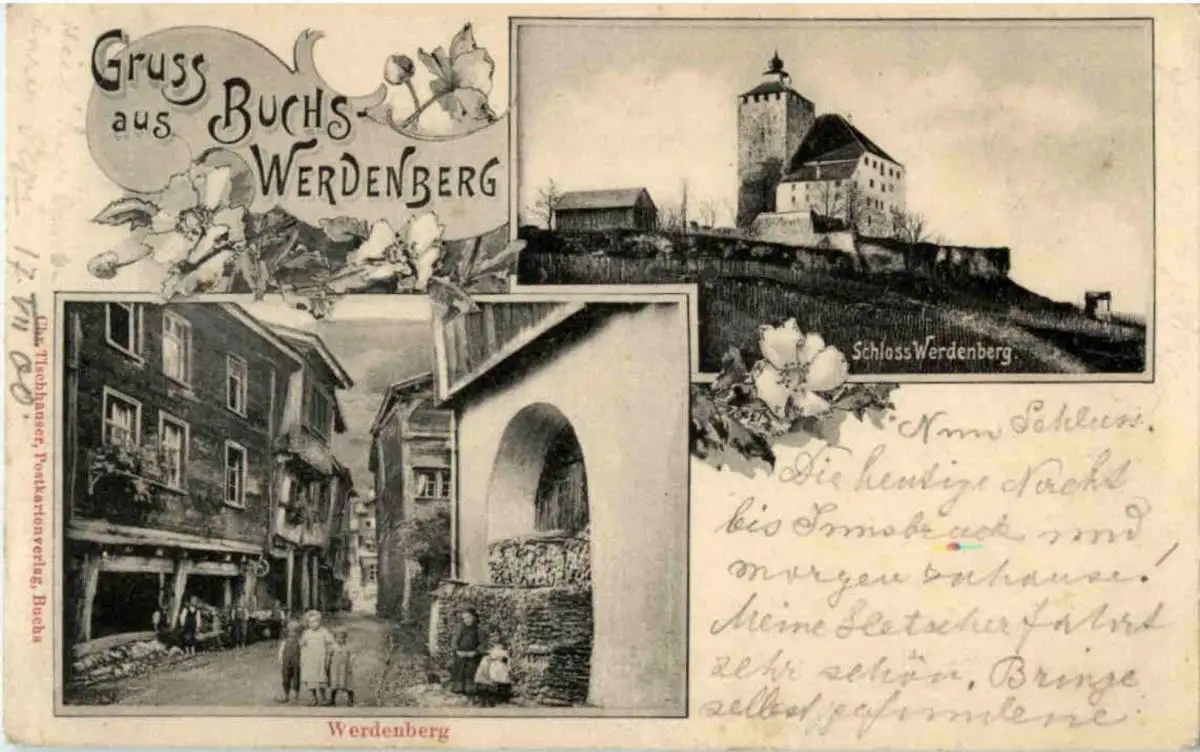 Gruss
aus
BUCHS-
WERDENBERG
Schloss Werdenberg.
Nun Schluss.
Die heutige Nacht
bis Innsbruck und
morgen zuhause!
Meine Gletscherfahrt
sehr schön. Bringe
selbst gefundene
17. VII 00.
Chr. Tischhauser, Postkartenverlag, Buchs
Werdenberg